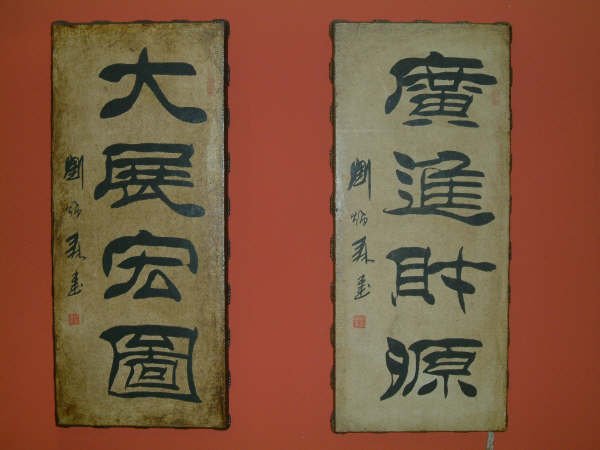 廣進財源
劉炳森書
大展宏圖
劉炳森書